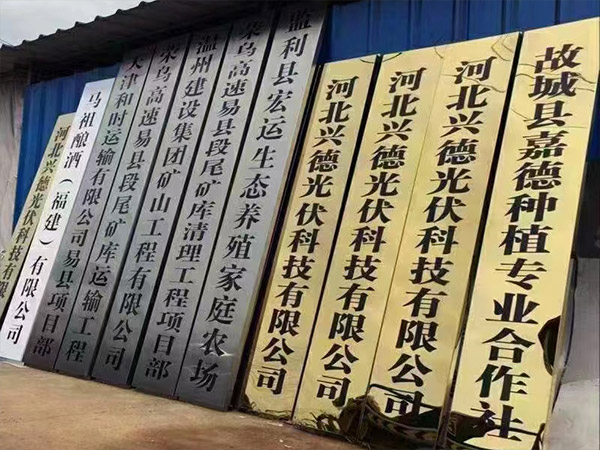 河北兴德光伏科技有限
马祖酿酒（福建）有限公司
天津和时运输有限公司易县项目部
荣乌高速易县段尾矿库运输工程
温州建设集团矿山工程有限公司
荣乌高速易县段尾矿库清理工程项目部
监利县宏运生态养殖家庭农场
河北兴德光伏科技有限公司
河北兴德光伏科技有限公司
河北兴德光伏科技有限公司
故城县嘉德种植专业合作社